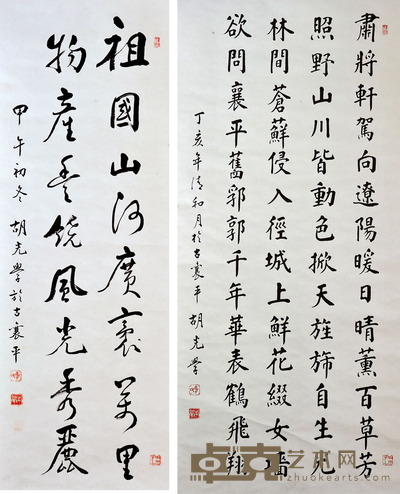 肅將軒駕向遼陽暖日晴薰百草芳
照野山川皆動色掀天旌旆自生光
林間蒼蘚侵入徑城上鮮花綴女墻
欲問襄平舊郛郭千年華表鶴飛翔
丁亥年清和月於古襄平 胡光學
祖國山河廣袤萬里
物產豐饒風光秀麗
甲午初冬 胡光學於古襄平
卓克艺术网
zhuokearts.com